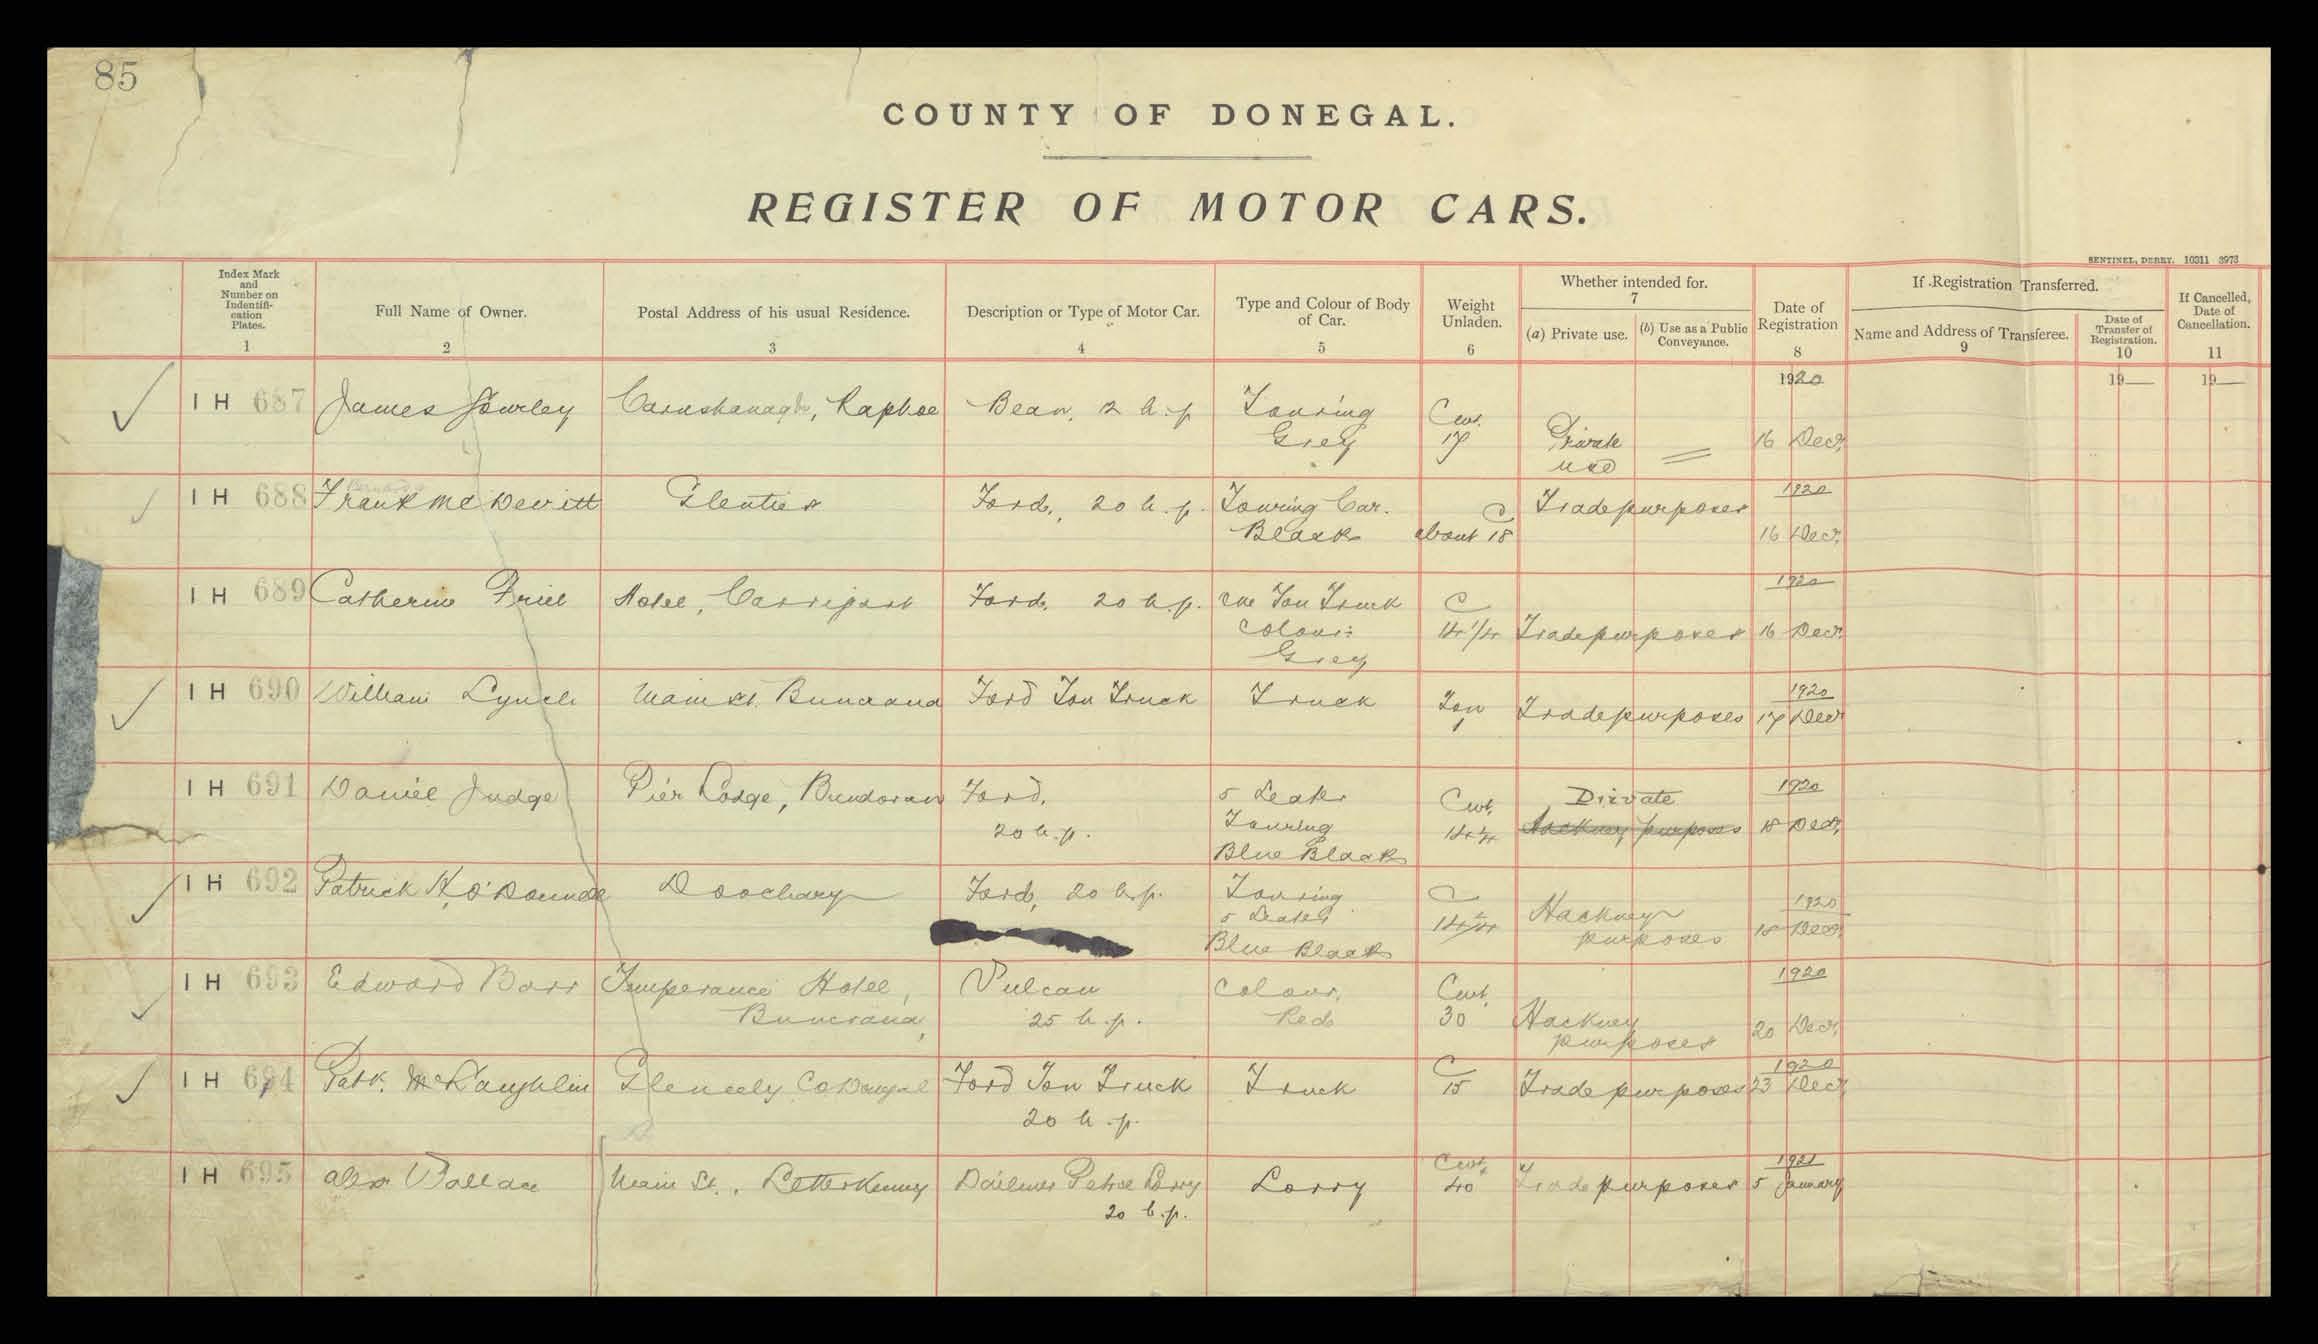 85
COUNTY OF DONEGAL.
REGISTER OF MOTOR CARS.
SENTINEL, DERRY. 10311 3973
Index Mark and Number on Indentifi-cation Plates. 1
Full Name of Owner. 2
Postal Address of his usual Residence. 3
Description or Type of Motor Car. 4
Type and Colour of Body of Car. 5
Weight Unladen. 6
Whether intended for. 7
(a) Private use.
(b) Use as a Public Conveyance.
Date of Registration 8
If Registration Transferred.
Name and Address of Transferee. 9
Date of Transfer of Registration. 10
If Cancelled, Date of Cancellation. 11
1920 19 19
IH 687 James Gourley Raphoe Bean, 12 h.p Touring Cwt.
Grey 17 Private use 16 Decr.
IH 688 Frank Mc Devitt Glenties Ford, 20 h.p. Touring Car. C Trade purposes 1920
Black about 18 16 Decr.
IH 689 Catherine Friel Hotel, Carrigart Ford, 20 h.p. one Ton Truck C 1920
Colour: 14 1/4 Trade purposes 16 Decr.
Grey
IH 690 William Lynch Main St. Buncrana Ford Ton Truck Truck Ton 1 Trade purposes 1920
17 Decr
IH 691 Daniel Judge Pier Lodge, Bundoran Ford, 5 Seater Cwt. Private 1920
20 h.p. Touring Hackney purposes 18 Decr.
Blue Black
IH 692 Patrick H. O'Donnell Doochary Ford, 20 h.p. Touring C 1920
5 Seater Hackney
Blue Black purposes 18 Decr.
IH 693 Edward Barr Temperance Hotel, Vulcan Colour, Cwt. 1920
Buncrana, 25 h.p. Red 30 Hackney purposes 20 Decr.
IH 694 Patk. McLaughlin Gleneely Co Donegal Ford Ton Truck Truck C 15 Trade purposes 1920 23 Decr.
20 h.p.
IH 695 Alex Wallace Main St., Letterkenny Daimler Petrol Lorry Lorry Cwt. 40 Trade purposes 1921 5 January
20 h.p.